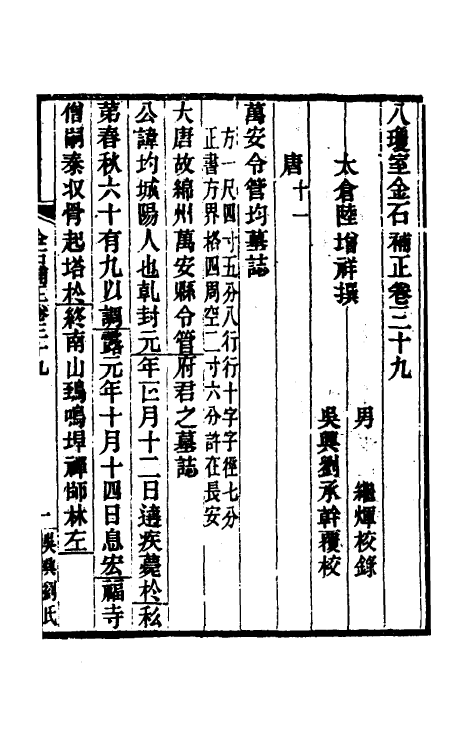 八瓊室金石補正卷三十九
太倉陸增祥撰
男　繼煇校錄
吳興劉承幹覆校
唐十一
萬安令管均墓誌
方一尺四寸五分八行行十字字徑七分
正書方界格四周空二寸六分許在長安
大唐故綿州萬安縣令管府君之墓誌
公諱均城陽人也乹封元年正月十二日遘疾薨於私
第春秋六十有九以調露元年十月十四日息宏福寺
僧嗣泰収骨起塔於終南山鵄鳴埠禪師林左
金石補正卷三十九
一
吳興劉氏